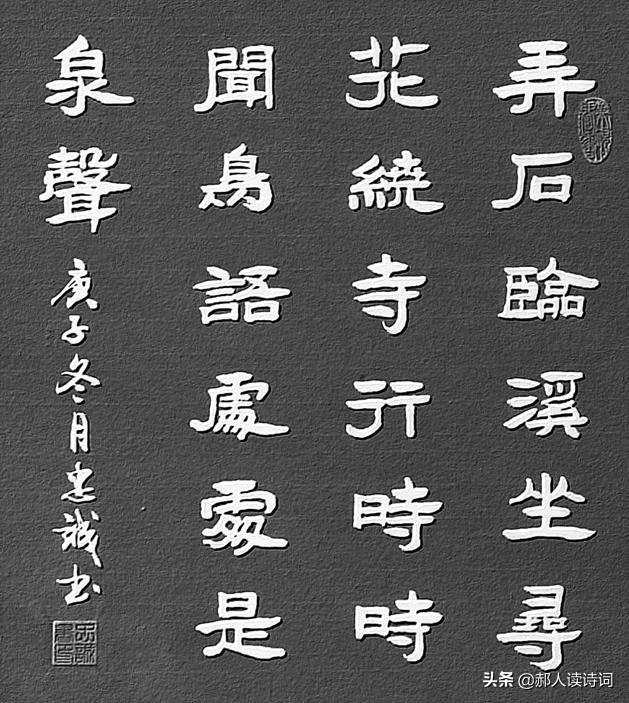 弄石臨溪坐尋
花繞寺行時時
聞鳥語處處是
泉聲
庚子冬月忠誠书
头条 @郝人读诗词